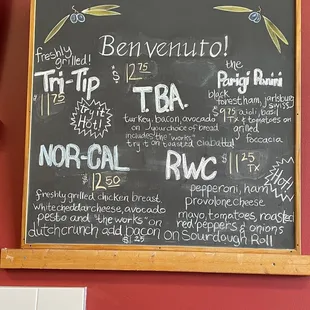 Benvenuto!
freshly
grilled!
Tri-Tip
$11 75
Try it
Hot!
$12 75
T.B.A.
turkey, bacon, avocado
on your choice of bread
includes the "works"
try it on toasted ciabatta!
the
Parigi Panini
black
forest ham, jarlsburg
swiss
$9 75
aioli, basil
tomatoes on
grilled
foccacia
NOR-CAL
$12 50
freshly grilled chicken breast
white cheddar cheese, avocado
pesto and "the works" on
dutch crunch add bacon
$1 25
RWC
$11 25
TX
Hot!
pepperoni, ham
provolone cheese
mayo, tomatoes, roasted
red peppers & onions
on Sourdough Roll